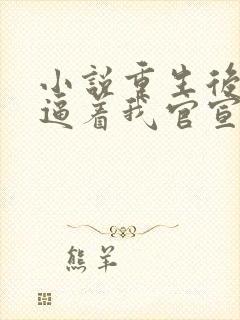 小說重生後
逼著我官宣
熊羊